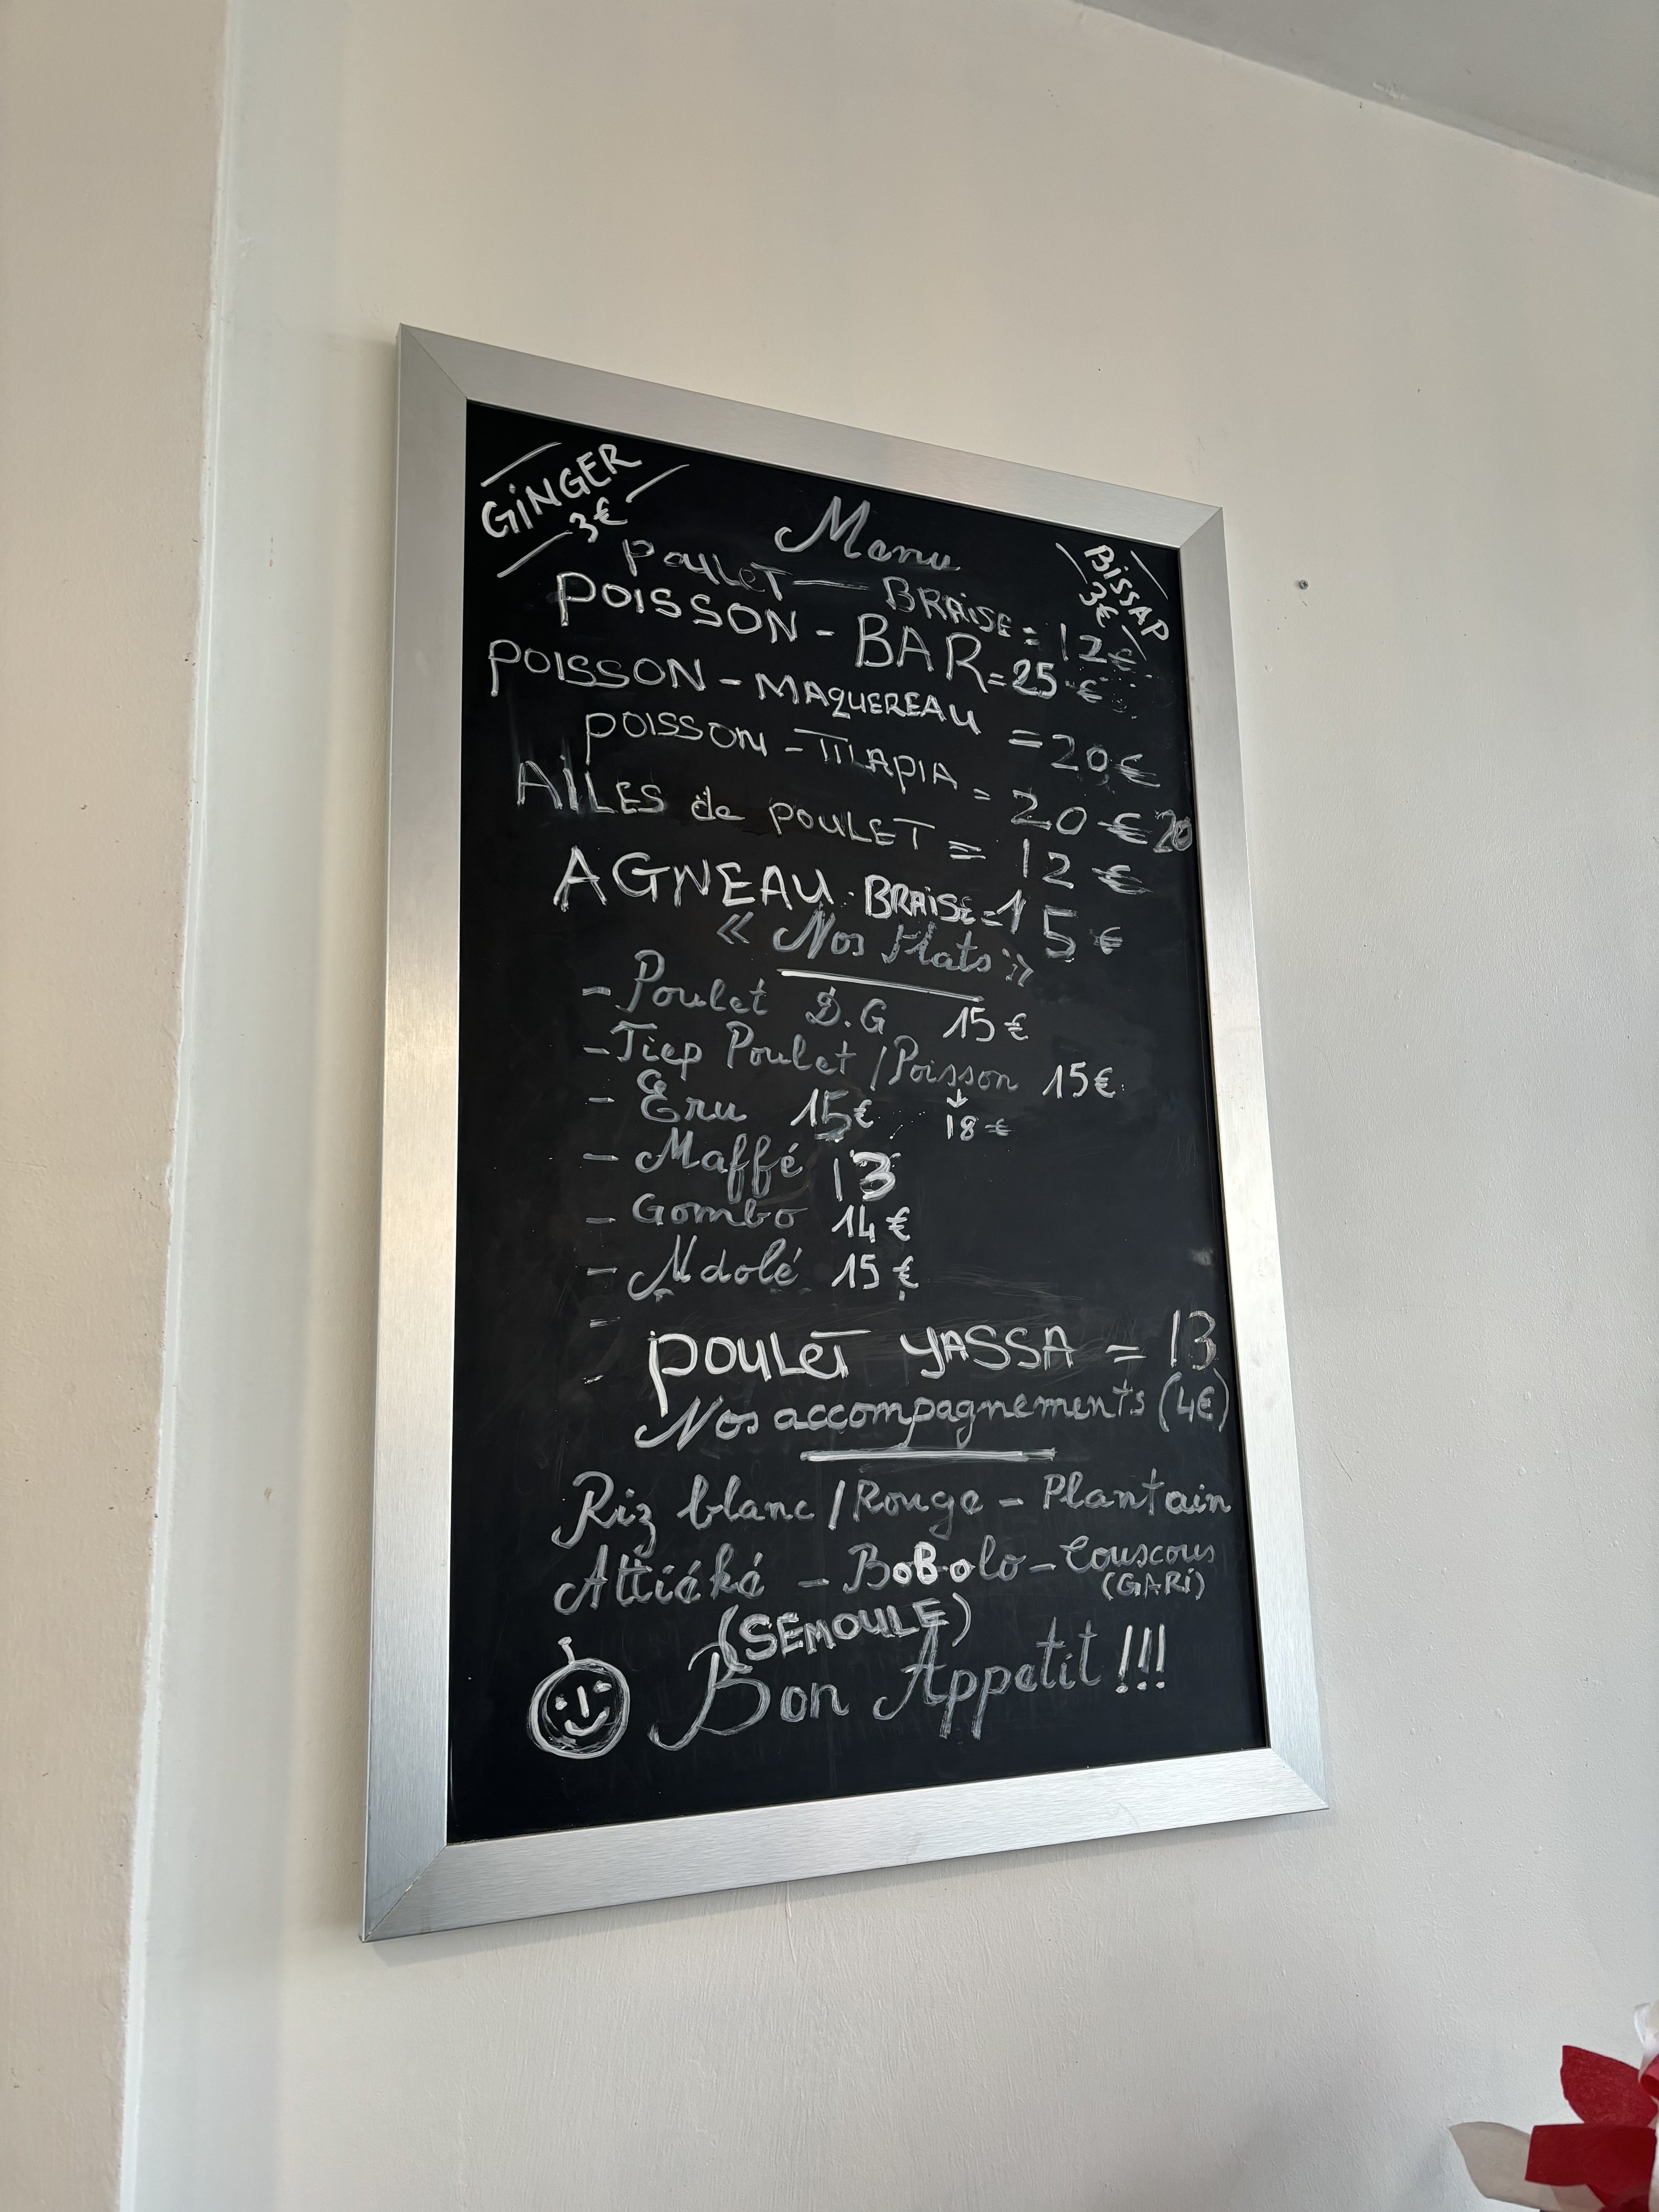 GiNGER
3€
Menu
BiSSAP
3€
POULET — BRAISE = 12€
POISSON - BAR = 25 €
POISSON - MAQUEREAU = 20€
POISSON - TILAPIA = 20 € 20
AILES de POULET = 12 €
AGNEAU. BRAISE = 15€
« Nos Plats »
- Poulet D.G 15€
- Tiep Poulet / Poisson 15€
↓
18€
- Eru 15€
- Maffé 13
- Gombo 14€
- Ndolé 15€
-
- POULET YASSA = 13
Nos accompagnements (4€)
Riz blanc / Rouge - Plantain
Attiéké - BoBolo - Couscous
(GARI)
(SEMOULE)
Bon Appetit !!!